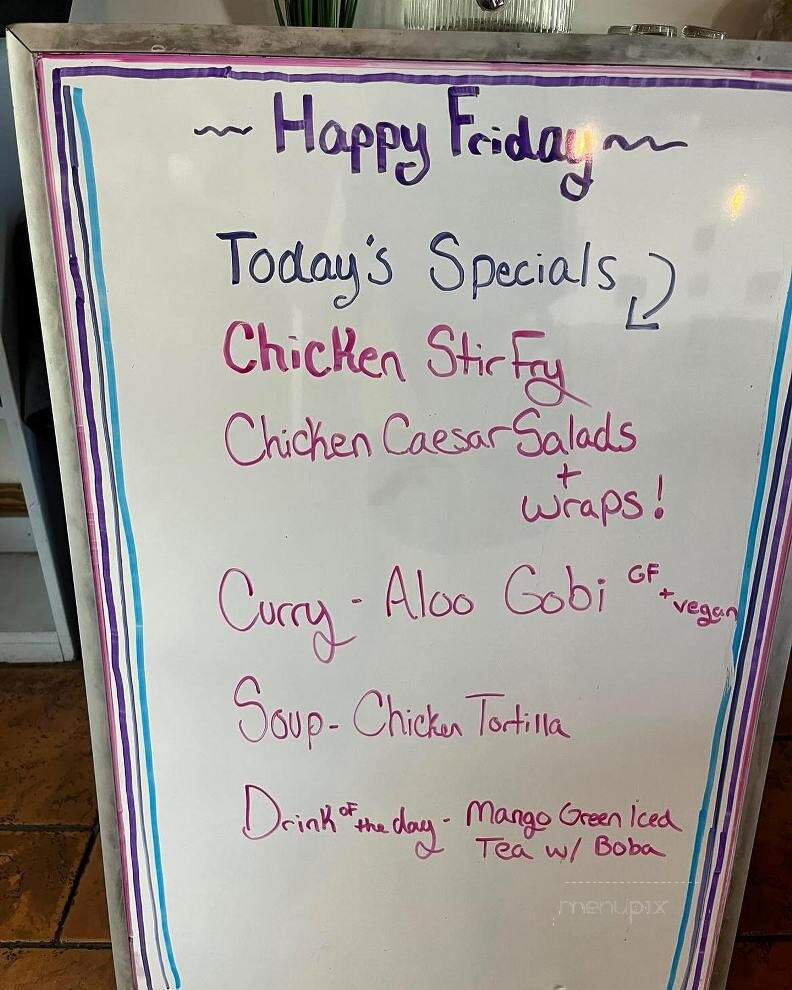 ~ Happy Friday ~
Today's Specials
Chicken Stir Fry
Chicken Caesar Salads
+
wraps!
Curry - Aloo Gobi GF + vegan
Soup - Chicken Tortilla
Drink of the day - Mango Green Iced
Tea w/ Boba
menupix